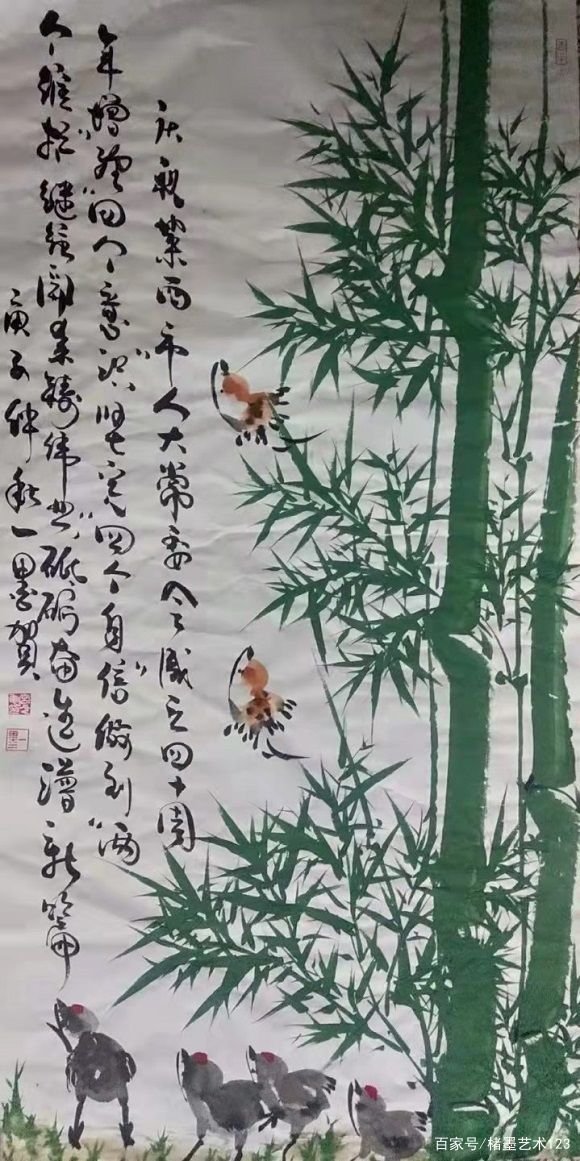 庆祝莱西市人大常委会成立四十周
年增强"四个意识"坚定"四个自信"做到"两
个维护"继往开来铸伟业砥砺奋进谱新篇
庚子仲秋一墨贺
百家号/楮墨艺术123